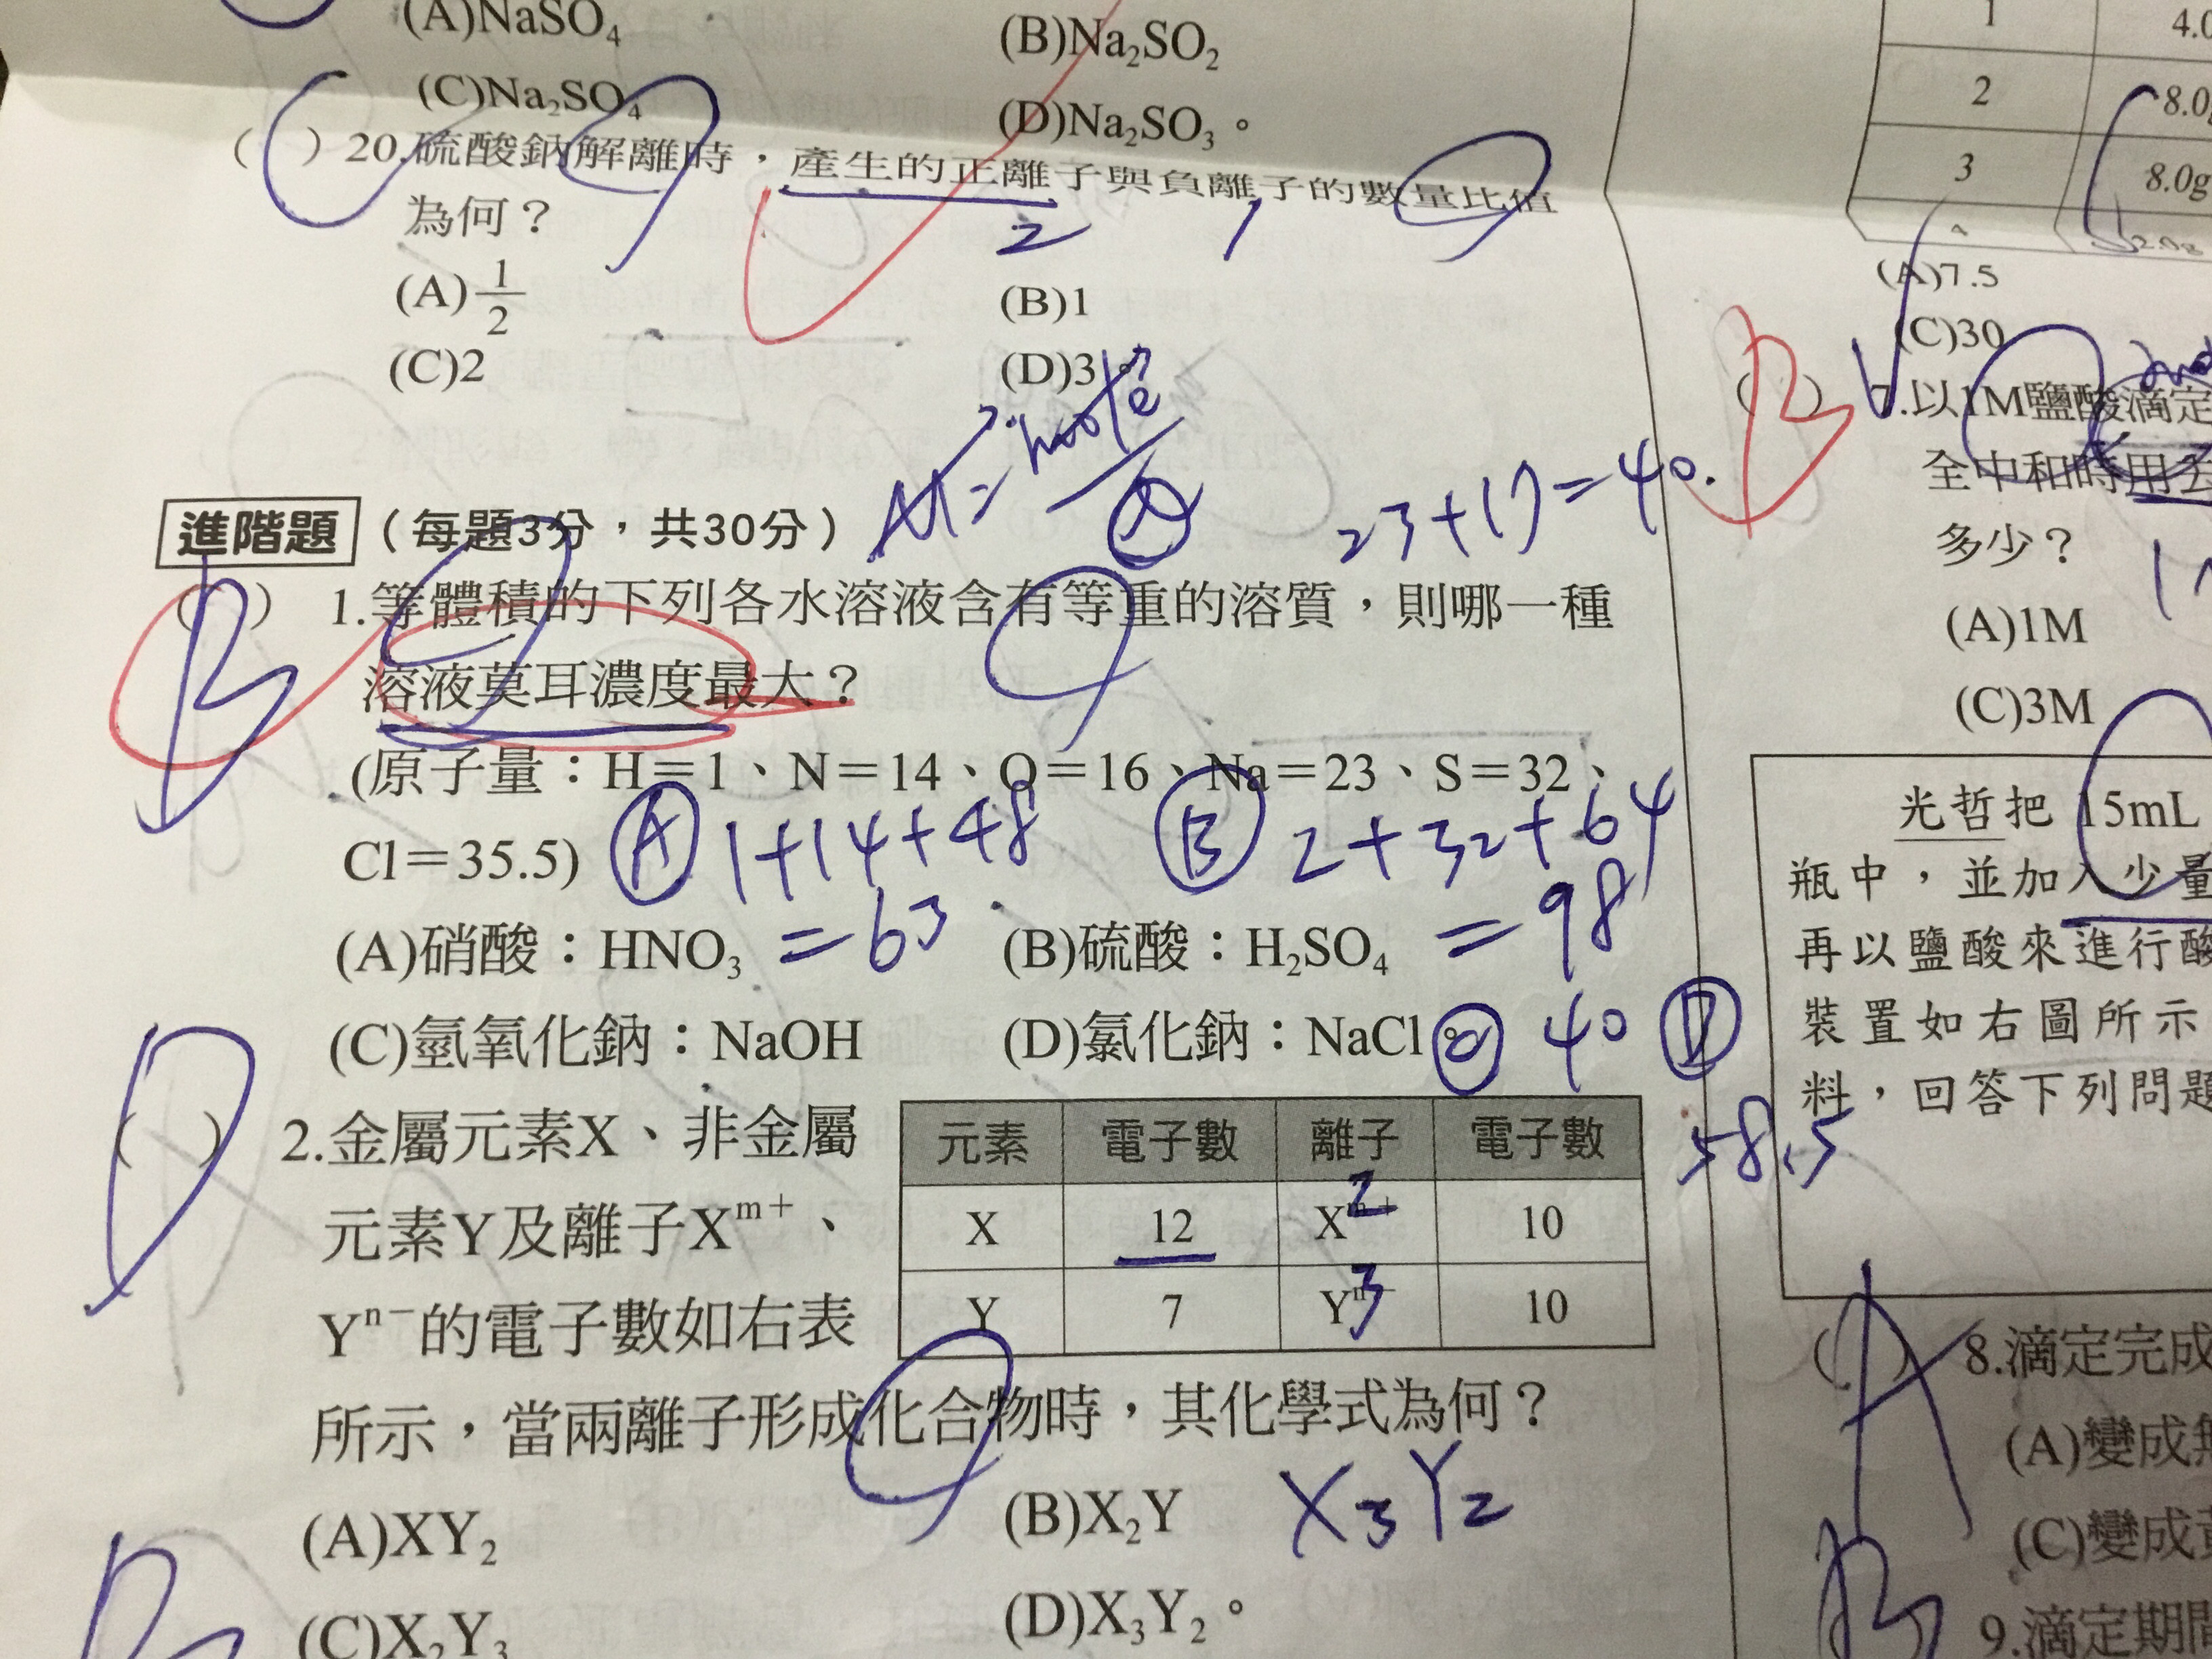 (A)NaSO₄
(B)Na₂SO₂
(C)Na₂SO₄
(D)Na₂SO₃。
( C ) 20.硫酸鈉解離時，產生的正離子與負離子的數量比值
為何？
2 1
(A)1/2
(B)1
(C)2
(D)3。
M=mole/V
23+17=40.
進階題（每題3分，共30分）
( B ) 1.等體積的下列各水溶液含有等重的溶質，則哪一種
溶液莫耳濃度最大？
(原子量：H＝1、N＝14、O＝16、Na＝23、S＝32、
Cl＝35.5)
Ⓐ 1+14+48
=63
Ⓑ 2+32+64
=98
(A)硝酸：HNO₃
(B)硫酸：H₂SO₄
(C)氫氧化鈉：NaOH
(D)氯化鈉：NaCl。
Ⓒ 40
Ⓓ 58.5
( D ) 2.金屬元素X、非金屬
元素Y及離子Xᵐ⁺、
Yⁿ⁻的電子數如右表
所示，當兩離子形成化合物時，其化學式為何？
元素 電子數 離子 電子數
X 12 Xᵐ⁺ 2 10
Y 7 Yⁿ⁻ 3 10
X₃Y₂
(A)XY₂
(B)X₂Y
(C)X₂Y₃
(D)X₃Y₂。
B
1 4.0
2 8.0g
3 8.0g
2.0g
(A)7.5
(C)30
( B ) 7.以1M鹽酸滴定
全中和時用去
多少？
(A)1M
(C)3M
光哲把 15mL
瓶中，並加入少量
再以鹽酸來進行酸
裝置如右圖所示
料，回答下列問題
( A ) 8.滴定完成
(A)變成無
(C)變成黃
B 9.滴定期間